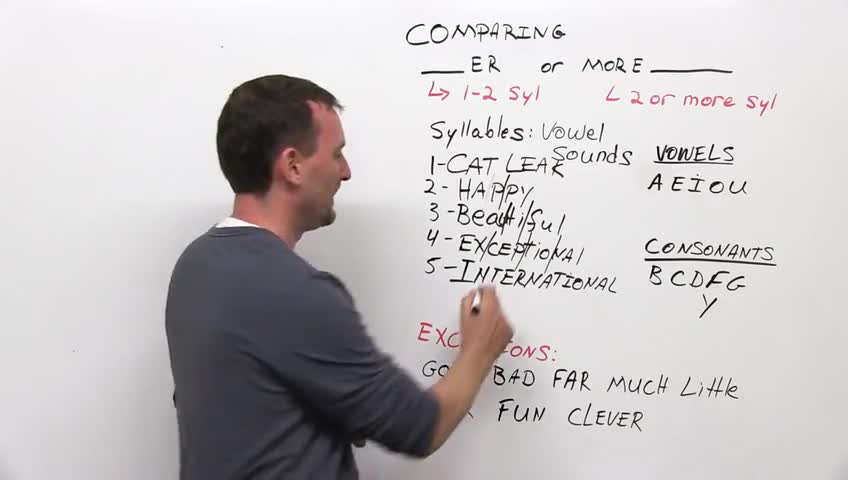 COMPARING
___ER or MORE ______
↳ 1-2 Syl ↳ 2 or more syl
Syllables: Vowel
Sounds
1-CAT LEAK
2-HAPPY
3-Beautiful
4-EXCEPTIONAL
5-INTERNATIONAL
VOWELS
A E I O U
CONSONANTS
B C D F G
Y
BAD FAR MUCH Little
FUN CLEVER